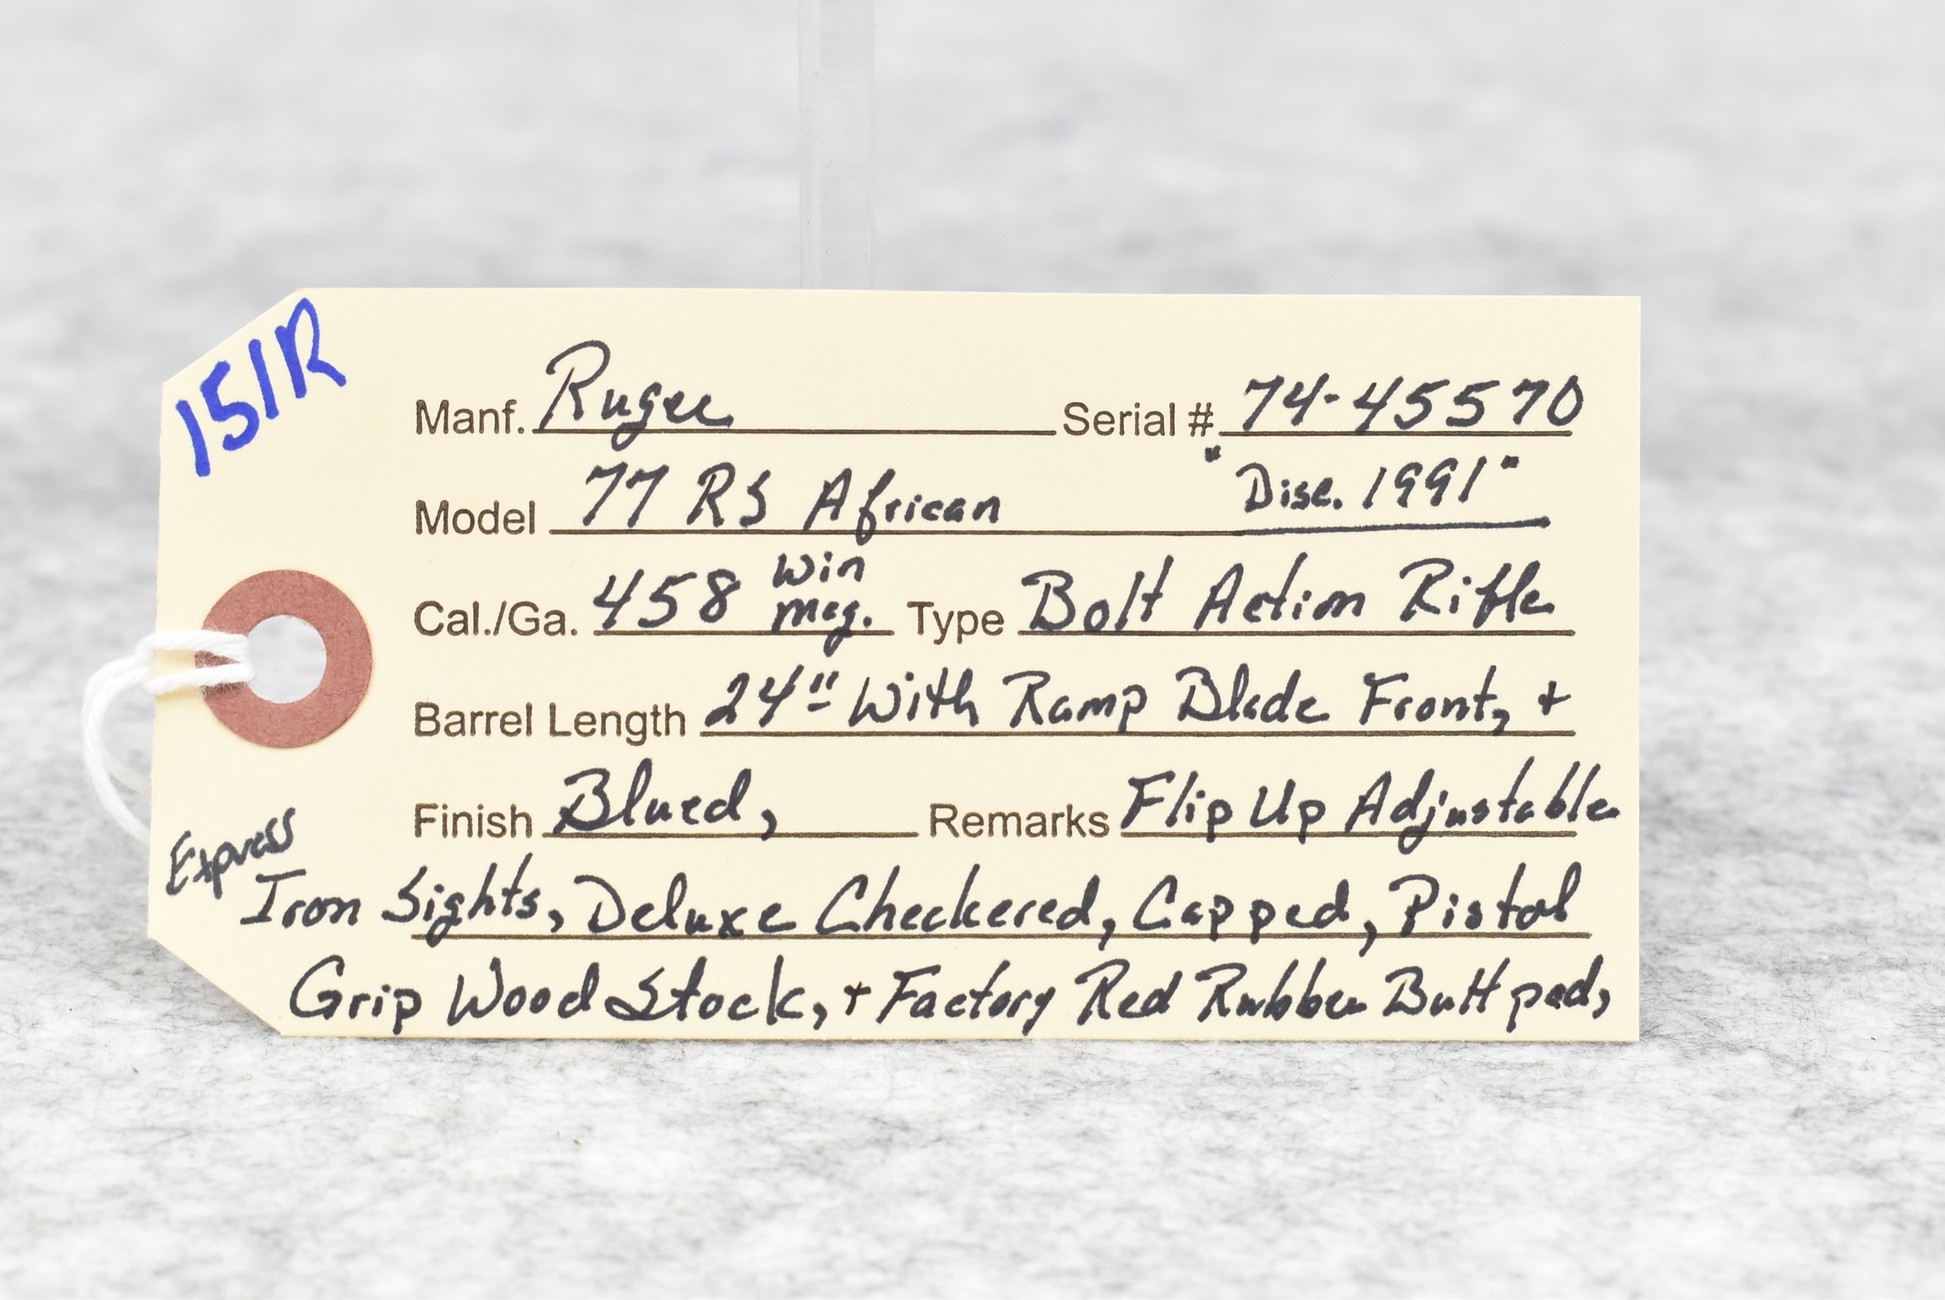 151R
Manf. Ruger Serial # 74-45570
Model 77 RS African "Disc. 1991"
Cal./Ga. 458 Win Mag. Type Bolt Action Rifle
Barrel Length 24" With Ramp Blade Front, +
Finish Blued, Remarks Flip Up Adjustable
Express
Iron Sights, Deluxe Checkered, Capped, Pistol
Grip Wood Stock, + Factory Red Rubber Butt pad,